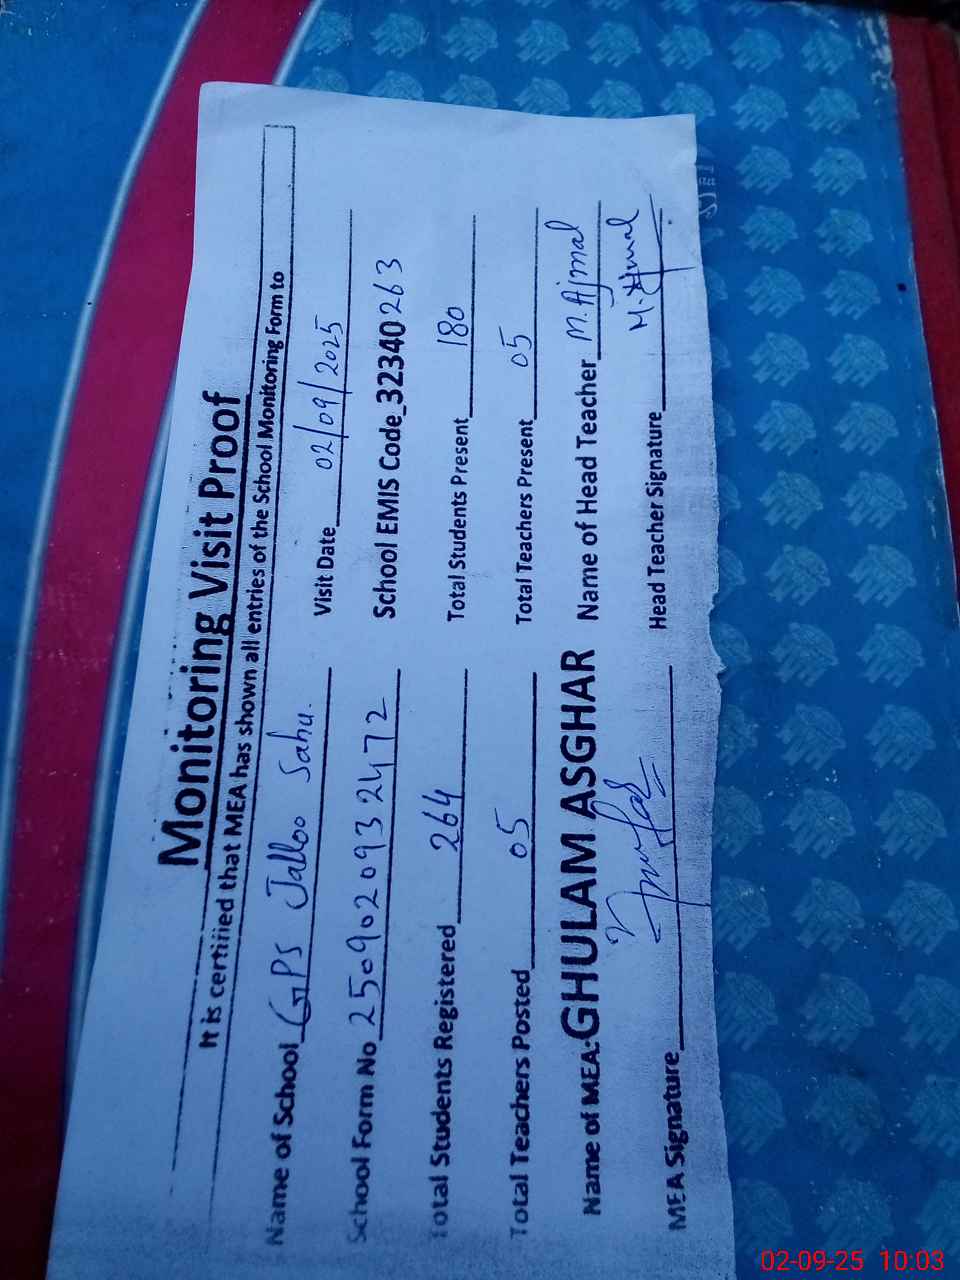 Monitoring Visit Proof
It is certified that MEA has shown all entries of the School Monitoring Form to
Name of School GPS Jalloo Sahu. Visit Date 02/09/2025
School Form No 2509020932472 School EMIS Code 32340263
Total Students Registered 264 Total Students Present 180
Total Teachers Posted 05 Total Teachers Present 05
Name of MEA: GHULAM ASGHAR Name of Head Teacher M. Ajmal
MEA Signature Head Teacher Signature M. Ajmal
02-09-25 10:03